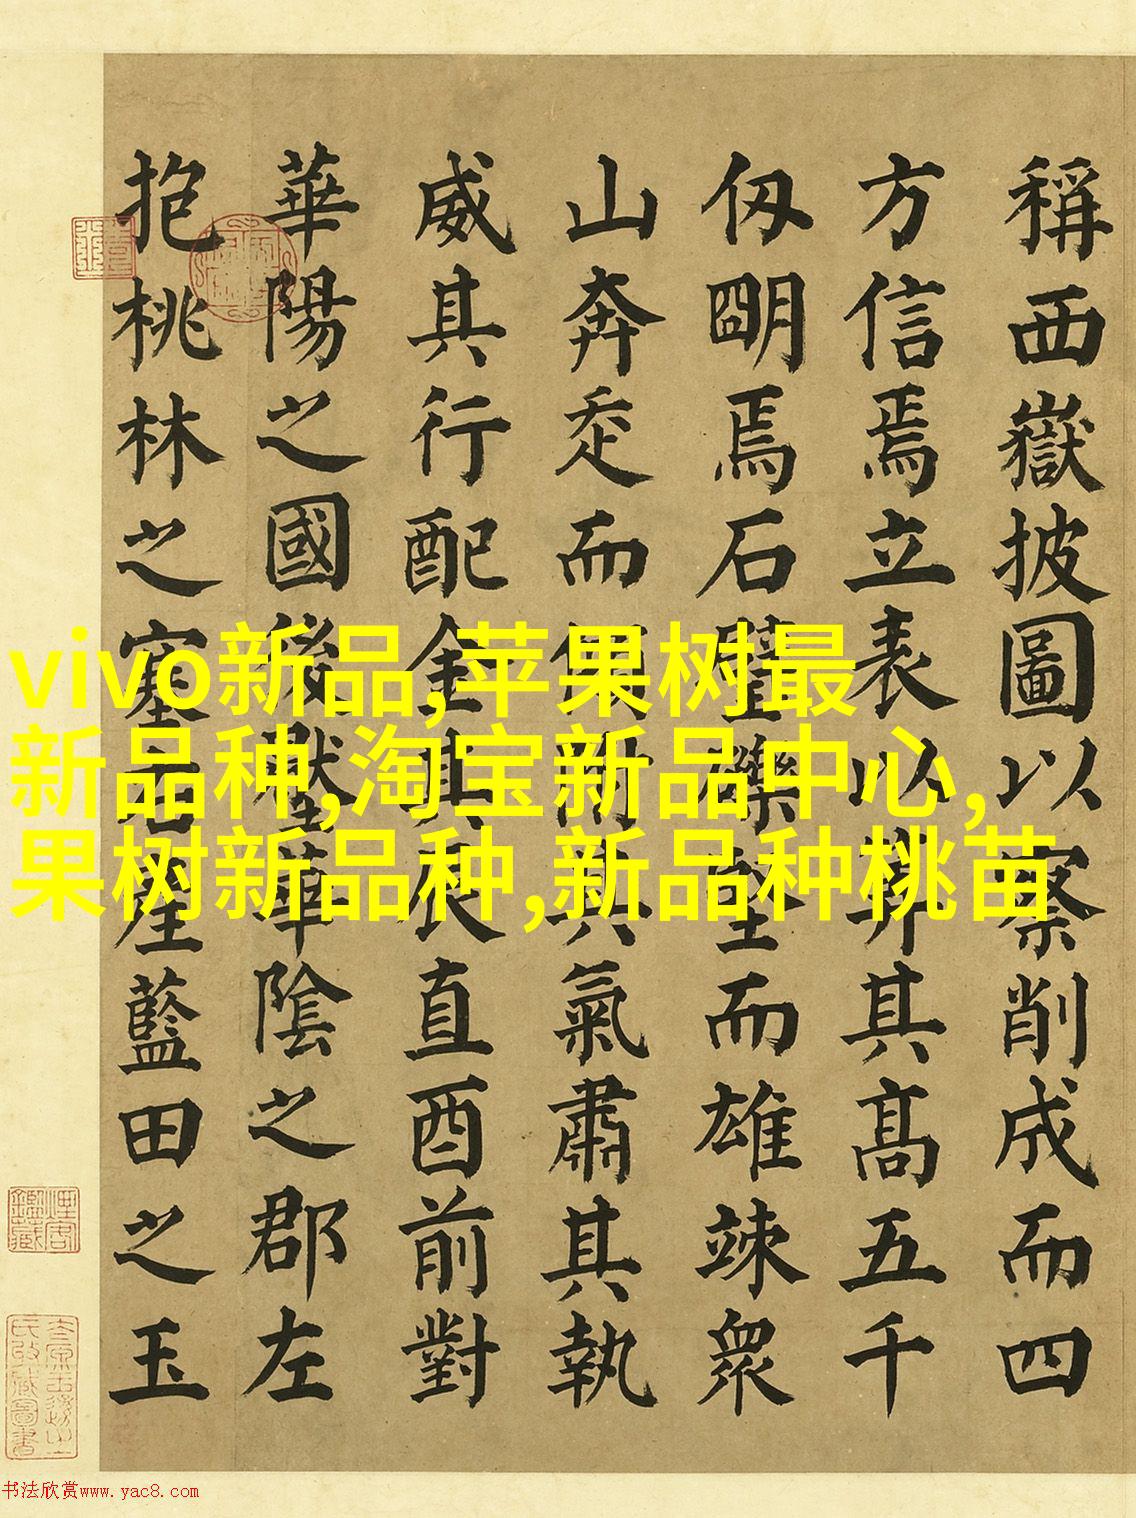 稱西嶽披圖以察削成而四
方信焉立表以筭其髙五千
仭朙焉石壁而雄竦衆
山奔走而其氣肅其執
威其行配金其辰直酉前對
華陽之國後壓華陰之郡左
抱桃林之塞右產藍田之玉
vivo新品,苹果树最
新品种,淘宝新品中心,
果树新品种,新品种桃苗
书法欣赏www.yac8.com